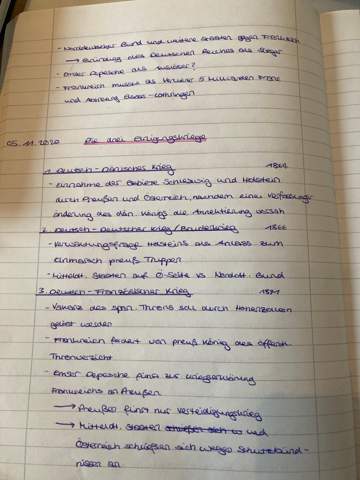 - Norddeutscher Bund und weitere Staaten gegen Frankreich
→ Gründung des Deutschen Reiches als Sieger
- Emser Depesche als Auslöser?
- Frankreich musste als Verlierer 5 Milliarden Francs
und Abtretung Elsass-Lothringen
05.11.2020 Die drei Einigungskriege
1. Deutsch-Dänischer Krieg 1864
- Einnahme der Gebiete Schleswig und Holstein
durch Preußen und Österreich, nachdem eine Verfassungs-
änderung des dän. Königs die Annektierung vorsah
2. Deutsch-Deutscher Krieg/Bruderkrieg 1866
- Verwaltungsfrage Holsteins als Anlass zum
Einmarsch preuß. Truppen
- Mitteldt. Staaten auf Ö-Seite vs. Norddt. Bund
3. Deutsch-Französischer Krieg 1871
- Vakanz des span. Throns soll durch Hohenzollern
gelöst werden
- Frankreich fordert von preuß. König des öffentl.
Thronverzicht
- Emser Depesche führt zur Kriegserklärung
Frankreichs an Preußen
→ Preußen führt nur Verteidigungskrieg
→ Mitteldt. Staaten schließen sich und
Österreich schließen sich wegen Schutzbünd-
nissen an